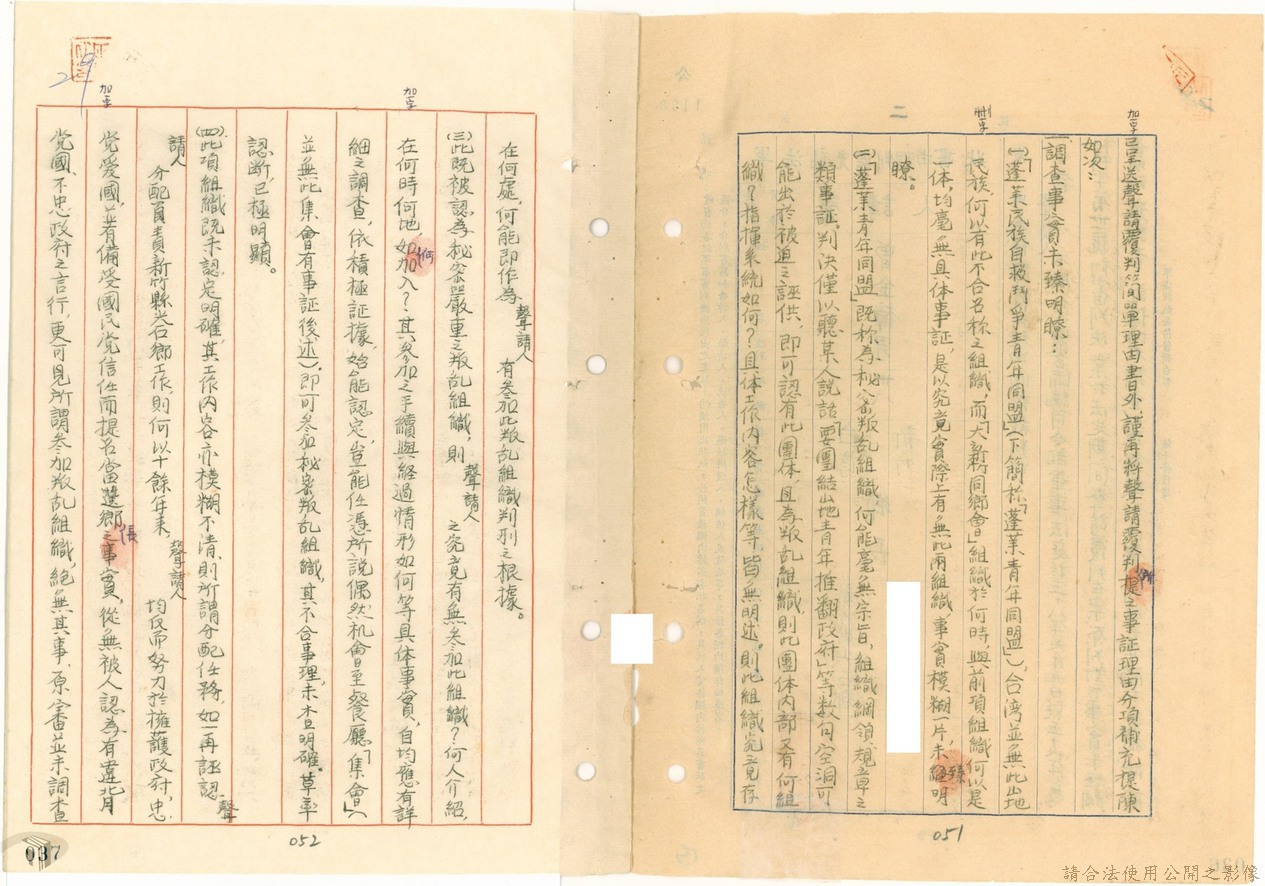 加字
已呈送聲請覆判簡單理由書日外,謹再將聲請覆判所提之事証理由分項補充提陳
如次:
一、調查事實未臻明瞭:
(一)「蓬萊民族自救鬥爭青年同盟」(下簡称「蓬萊青年同盟」),台湾並無此出地
刪字
民族,何以有此不合名称之組織,而「大新竹同鄉會」組織於何時,與前項組織何以是
一体,均毫無具体事証,是以究竟實際上有無此兩組織,事實模糊一片,未臻明
瞭。
(二)「蓬萊青年同盟」既称為秘密叛乱組織,何能毫無宗旨,組織綱領,規章之
類事証,判決僅以聽某人說話「要團結出地青年推翻政府」等数句空洞可
能出於被迫之誣供,即可認有此團体,且為叛乱組織,則此團体內部又有何組
織?指揮系統如何?具体工作內容怎樣等,皆無明述,則此組織究竟存
051
二
在何處,何能即作為聲請人有參加此叛乱組織判刑之根據。
(三)此既被認為秘密嚴重之叛乱組織,則聲請人之究竟有無參加此組織?何人介紹,
加字
在何時何地,如何加入?其參加之手續與經過情形如何等具体事實,自均應有詳
細之調查,依積極証據,始能認定,豈能任憑所說偶然机會至餐廳「集會」(
並無此集會有事証後述)即可參加秘密叛乱組織,其不合事理,未查明確,草率
認断,已極明顯。
(四)此項組織既未認定明確,其工作內容亦模糊不清,則所謂分配任務,如一再誣認聲
請人分配負責新竹縣芎林鄉工作,則何以十餘年來聲請人均反而努力於擁護政府,忠
加字
党愛國,並著備受國民党信任而提名當選鄉長之事實,從無被人認為有違背
党國、不忠政府之言行,更可見所謂參加叛乱組織,絕無其事,原審並未調查
052
037
請合法使用公開之影像